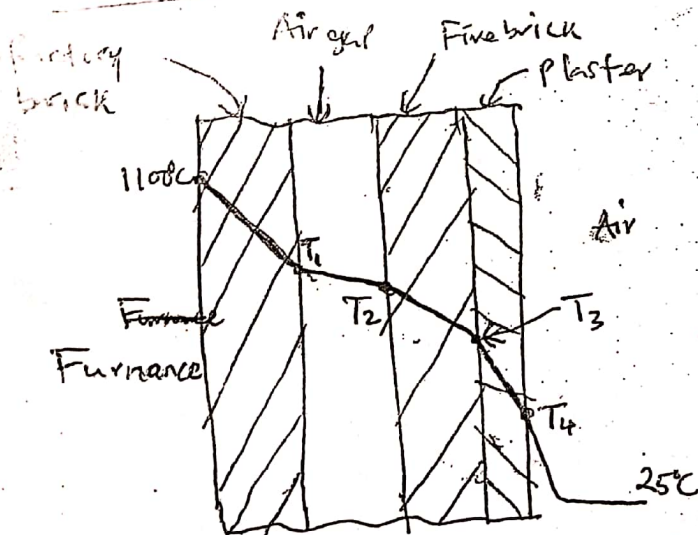 brick
Air gap
Firebrick
plaster
1100°C
T1
T2
T3
T4
Air
Furnance
Furnance
25°C